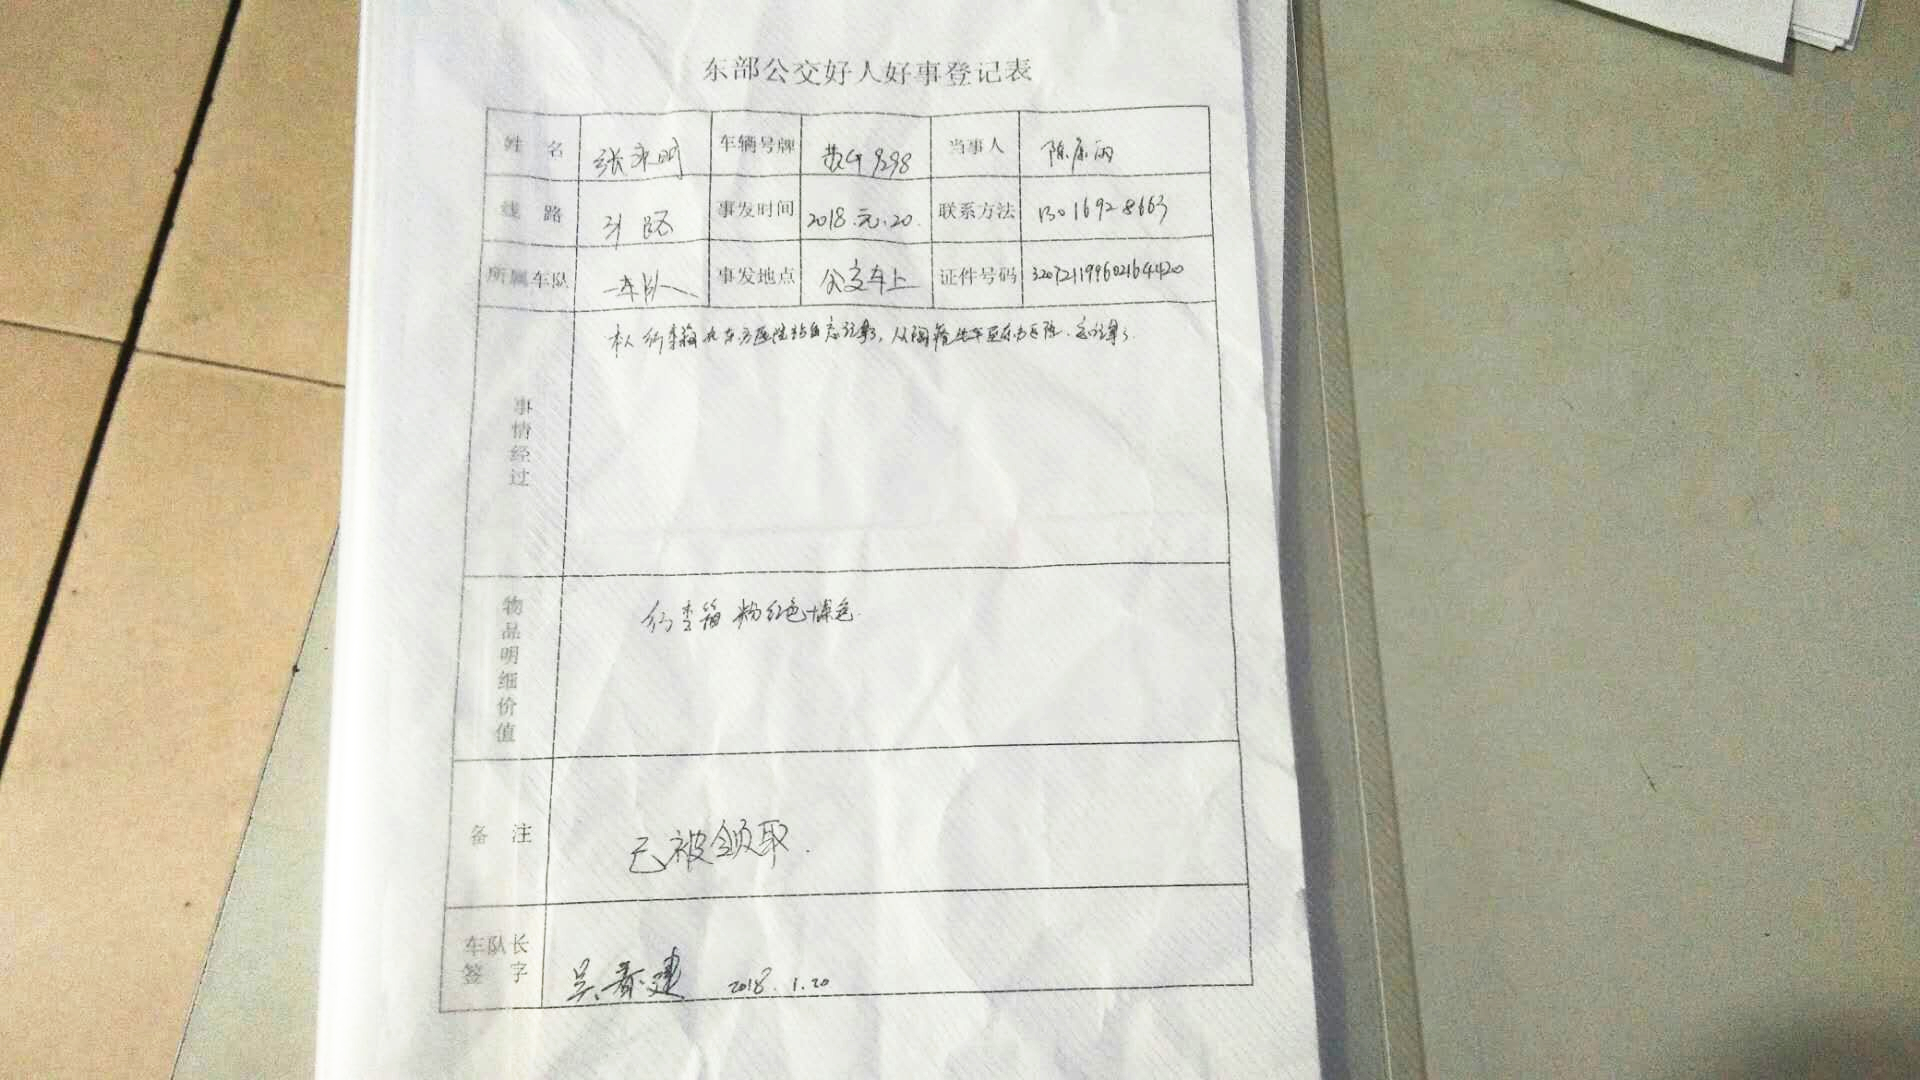 东部公交好人好事登记表
姓 名 张永明 车辆号牌 苏G9298 当事人 陈康丽
线 路 路 事发时间 2018.元.20. 联系方法 13016928663
所属车队 一车队 事发地点 公交车上 证件号码 320721199602164420
事情经过 本人行李箱在东方医院站台忘记拿了,从 坐车至东方医院.忘记拿了
物品明细价值 行李箱 粉红色+棕色.
备 注 已被领取.
车队长
签 字 吴春建 2018.1.20